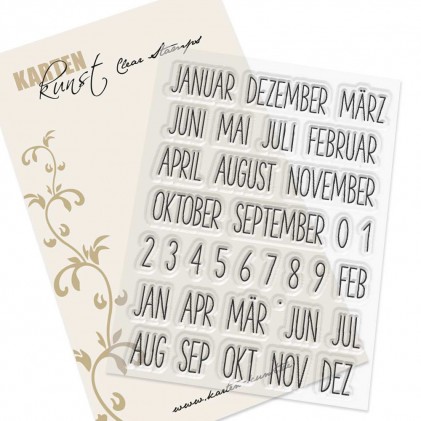 KARTEN
Kunst Clear Stamps
JANUAR DEZEMBER MÄRZ
JUNI MAI JULI FEBRUAR
APRIL AUGUST NOVEMBER
OKTOBER SEPTEMBER 0 1
2 3 4 5 6 7 8 9 FEB
JAN APR MÄR . JUN JUL
AUG SEP OKT NOV DEZ